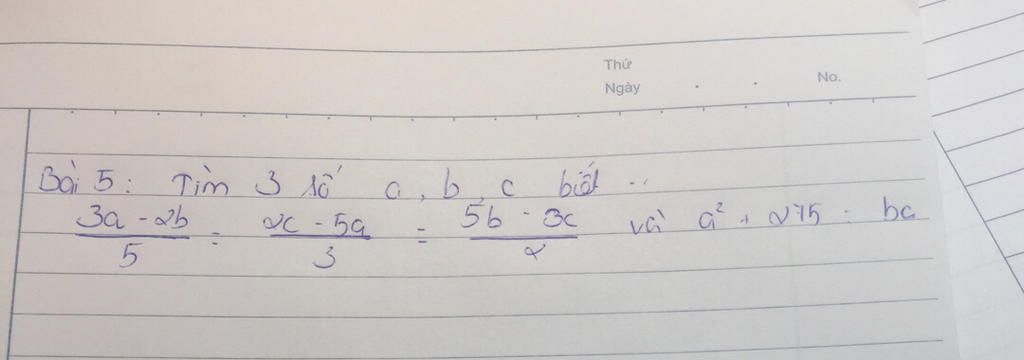 Thứ
Ngày . . No.
Bài 5: Tìm 3 số a, b, c biết ..
3a - 2b / 5 = 2c - 5a / 3 = 5b - 3c / 2 và a² + 275 = bc